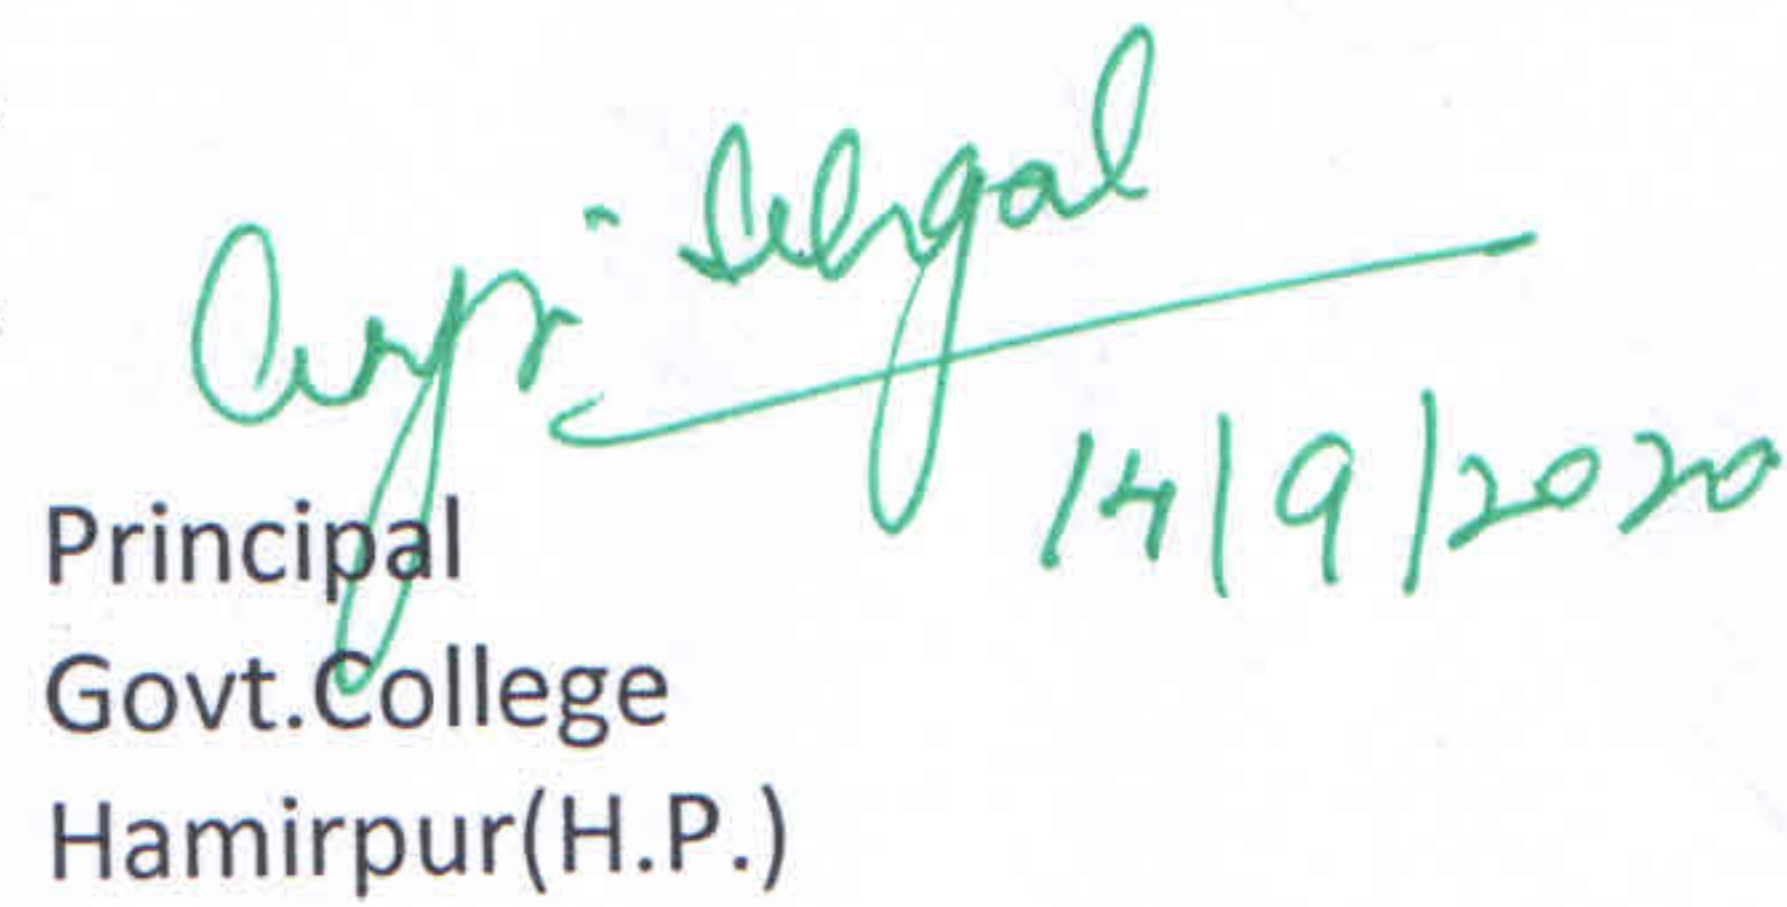 Sehgal
14/9/2020
Principal
Govt.College
Hamirpur(H.P.)